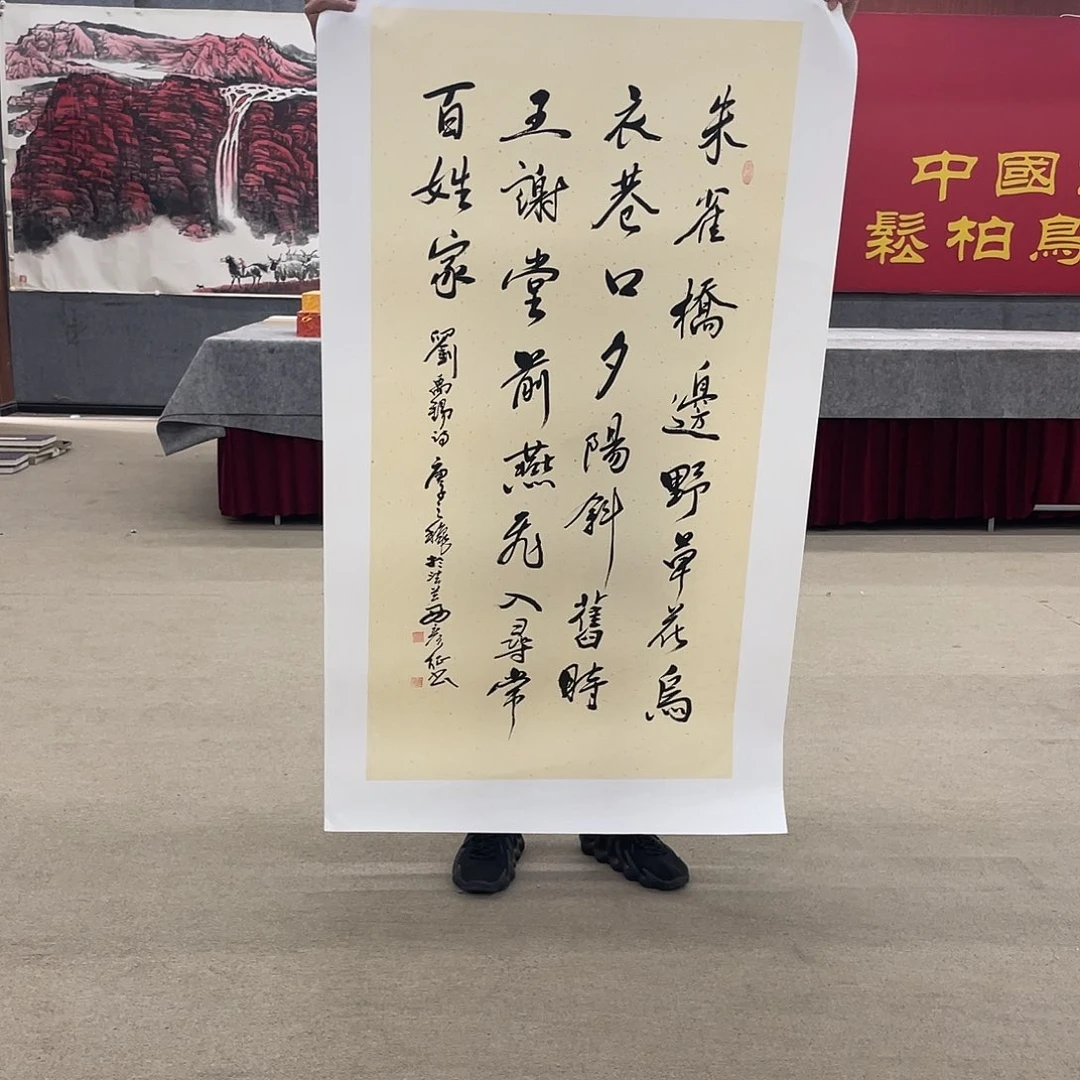 朱雀橋邊野草花烏
衣巷口夕陽斜舊時
王謝堂前燕飛入尋常
百姓家
劉禹錫詩 庚子之秋於法兰西彦征书
中國
鬆柏鳥